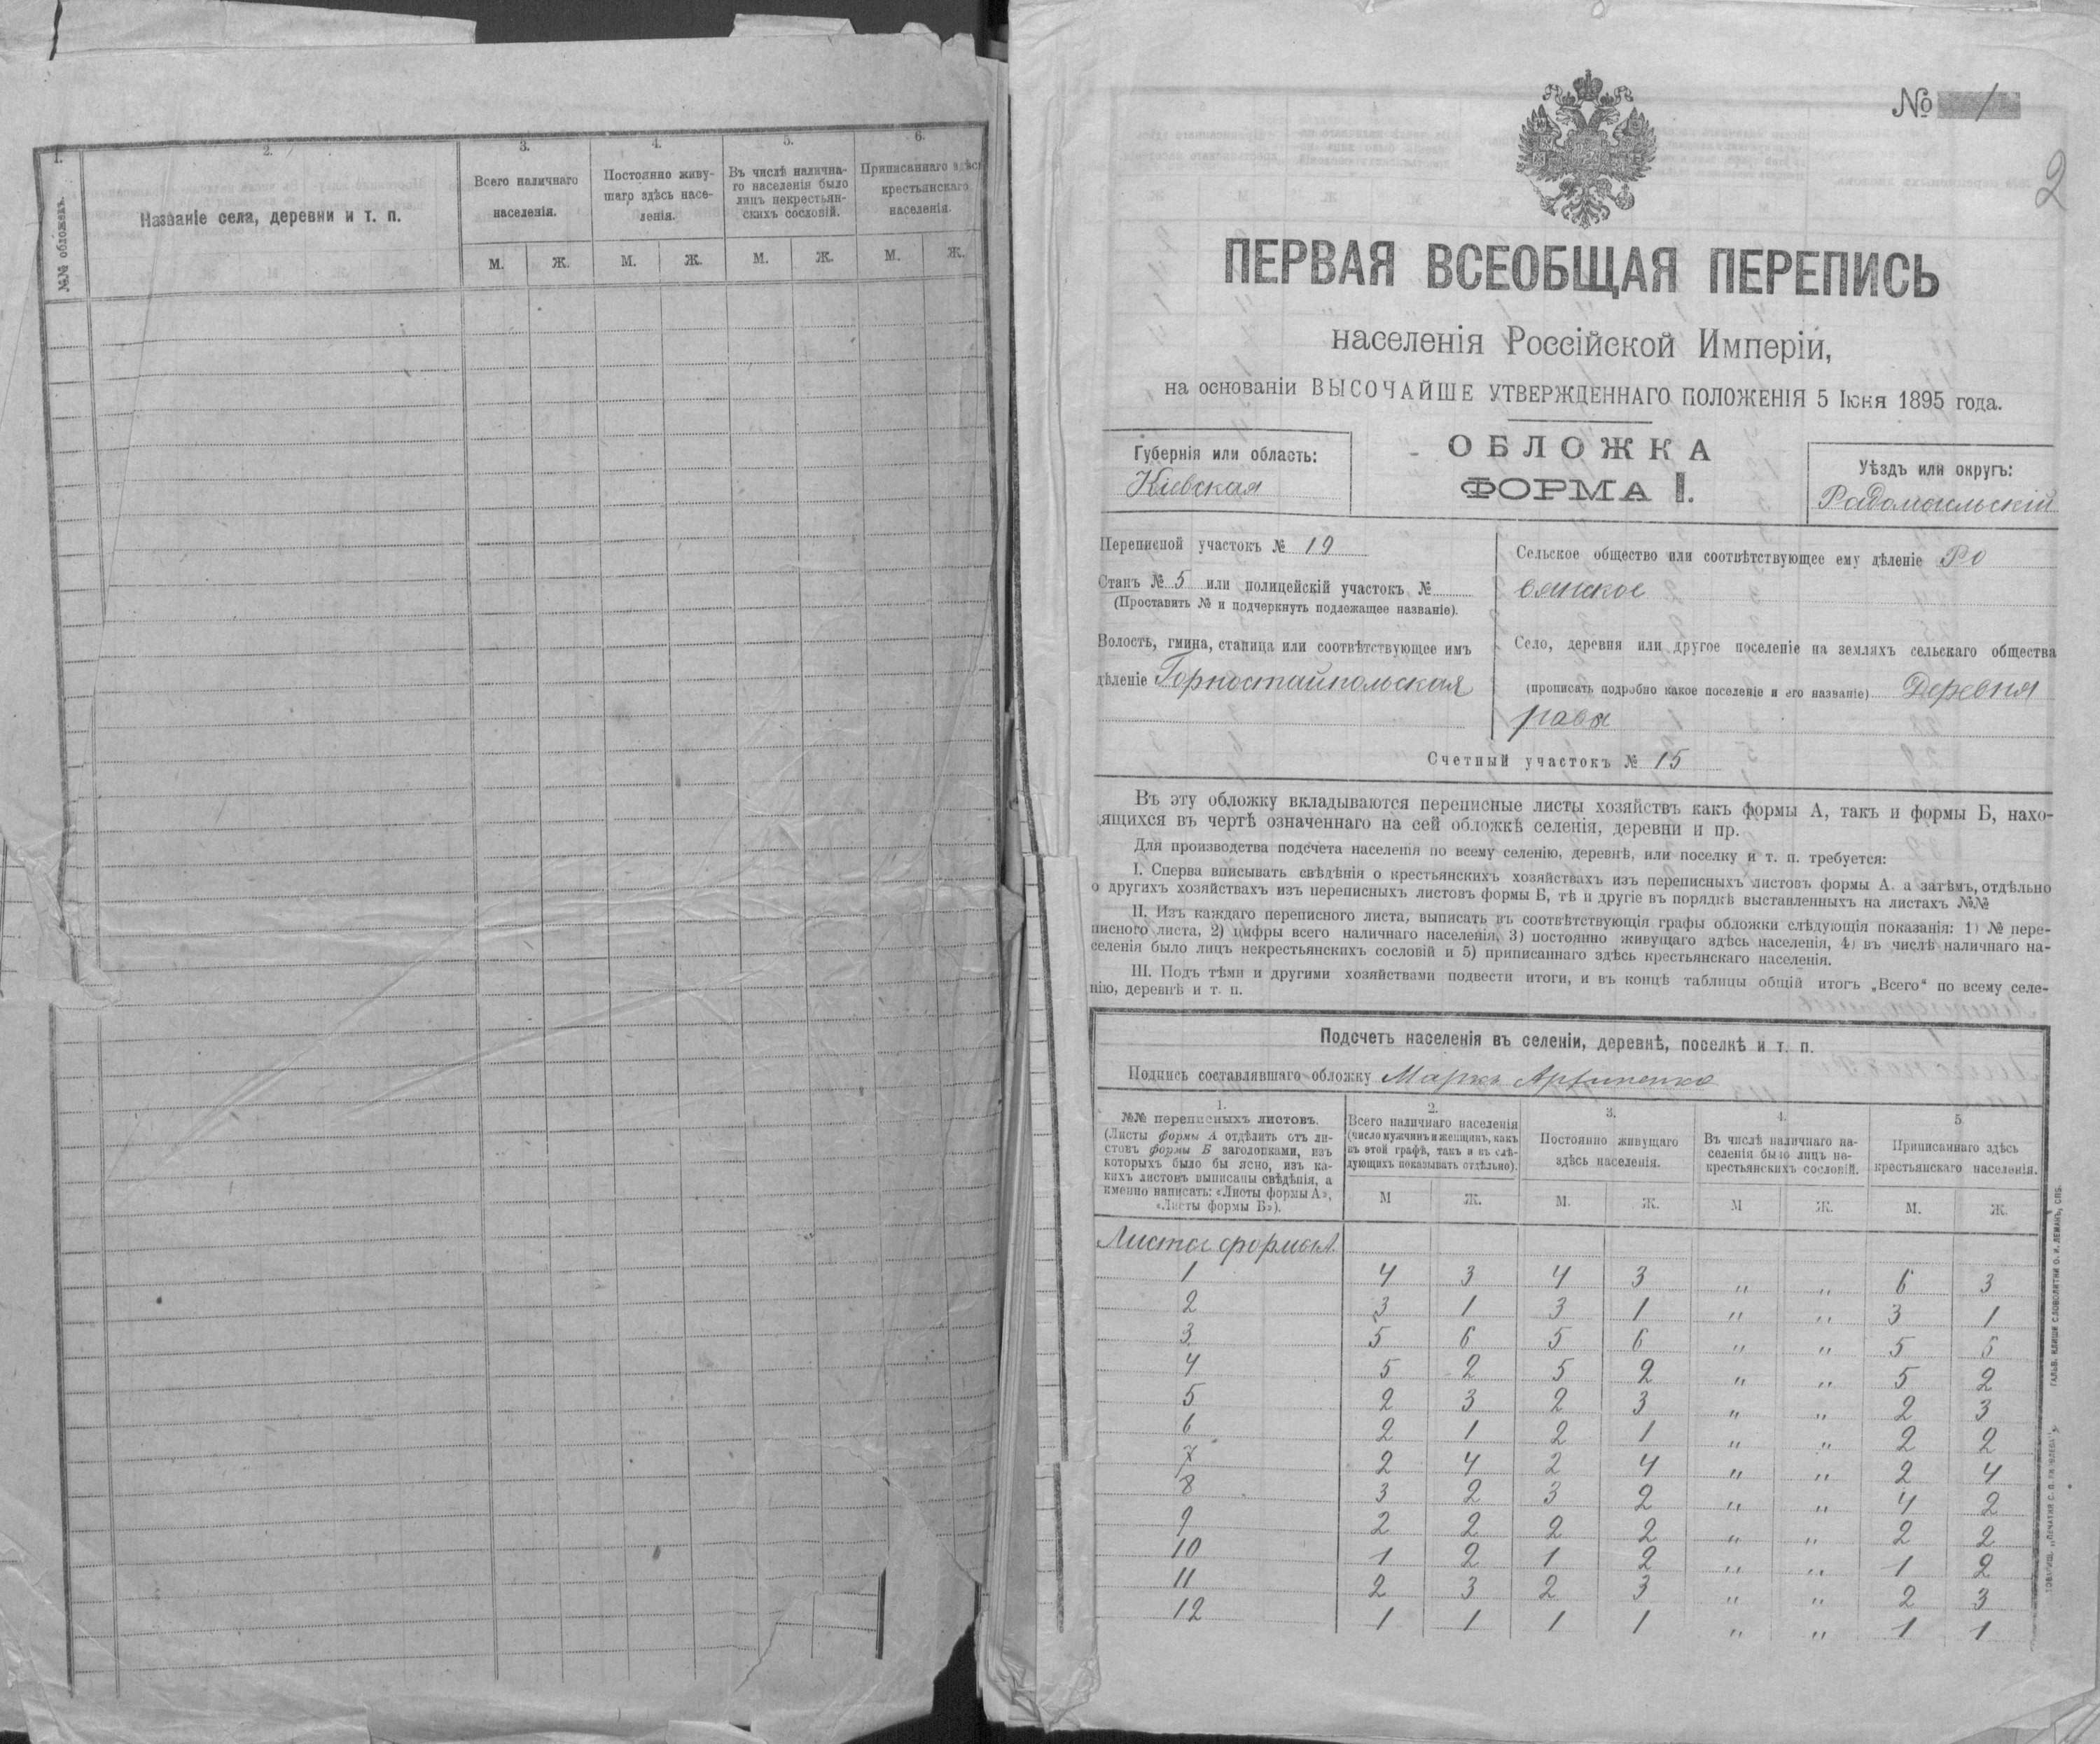 1.
№№ обложекъ.
2.
Названіе села, деревни и т. п.
3.
Всего наличнаго
населенія.
М. Ж.
4.
Постоянно живу-
щаго здѣсь насе-
ленія.
М. Ж.
5.
Въ числѣ налична-
го населенія было
лицъ некрестьян-
скихъ сословій.
М. Ж.
6.
Приписаннаго здѣсь
крестьянскаго
населенія.
М. Ж.
№ 1
2
ПЕРВАЯ ВСЕОБЩАЯ ПЕРЕПИСЬ
населенія Россійской Имперіи,
на основаніи ВЫСОЧАЙШЕ УТВЕРЖДЕННАГО ПОЛОЖЕНІЯ 5 Іюня 1895 года.
Губернія или область:
Кіевская
ОБЛОЖКА
ФОРМА I.
Уѣздъ или округъ:
Радомысльскій
Переписной участокъ № 19
Станъ № 5 или полицейскій участокъ №
(Проставить № и подчеркнуть подлежащее названіе).
Волость, гмина, станица или соотвѣтствующее имъ
дѣленіе Горностайпольская
Сельское общество или соотвѣтствующее ему дѣленіе Ро
вянское
Село, деревня или другое поселеніе на земляхъ сельскаго общества
(прописать подробно какое поселеніе и его названіе) Деревня
Счетный участокъ № 15
Въ эту обложку вкладываются переписные листы хозяйствъ какъ формы А, такъ и формы Б, нахо-
дящихся въ чертѣ означеннаго на сей обложкѣ селенія, деревни и пр.
Для производства подсчета населенія по всему селенію, деревнѣ, или поселку и т. п. требуется:
I. Сперва вписывать свѣдѣнія о крестьянскихъ хозяйствахъ изъ переписныхъ листовъ формы А. а затѣмъ, отдѣльно
о другихъ хозяйствахъ изъ переписныхъ листовъ формы Б, тѣ и другіе въ порядкѣ выставленныхъ на листахъ №№
II. Изъ каждаго переписного листа, выписать въ соотвѣтствующія графы обложки слѣдующія показанія: 1) № пере-
писного листа, 2) цифры всего наличнаго населенія, 3) постоянно живущаго здѣсь населенія, 4) въ числѣ наличнаго на-
селенія было лицъ некрестьянскихъ сословій и 5) приписаннаго здѣсь крестьянскаго населенія.
III. Подъ тѣми и другими хозяйствами подвести итоги, и въ концѣ таблицы общій итогъ „Всего“ по всему селе-
нію, деревнѣ и т. п.
Подсчетъ населенія въ селеніи, деревнѣ, поселкѣ и т. п.
Подпись составлявшаго обложку Маркъ
1.
№№ переписныхъ листовъ.
(Листы формы А отдѣлить отъ ли-
стовъ формы Б заголовками, изъ
которыхъ было бы ясно, изъ ка-
кихъ листовъ выписаны свѣдѣнія, а
именно написать: «Листы формы А»,
«Листы формы Б»).
2.
Всего наличнаго населенія
(число мужчинъ и женщинъ, какъ
въ этой графѣ, такъ и въ слѣ-
дующихъ показывать отдѣльно).
М Ж.
3.
Постоянно живущаго
здѣсь населенія.
М. Ж.
4.
Въ числѣ наличнаго на-
селенія было лицъ не-
крестьянскихъ сословій.
М Ж.
5
Приписаннаго здѣсь
крестьянскаго населенія.
М. Ж.
Листы формы А.
1 4 3 4 3 „ „ 6 3
2 3 1 3 1 „ „ 3 1
3 5 6 5 6 „ „ 5 6
4 5 2 5 2 „ „ 5 2
5 2 3 2 3 „ „ 2 3
6 2 1 2 1 „ „ 2 2
7 2 4 2 4 „ „ 2 4
8 3 2 3 2 „ „ 4 2
9 2 2 2 2 „ „ 2 2
10 1 2 1 2 „ „ 1 2
11 2 3 2 3 „ „ 2 3
12 1 1 1 1 „ „ 1 1